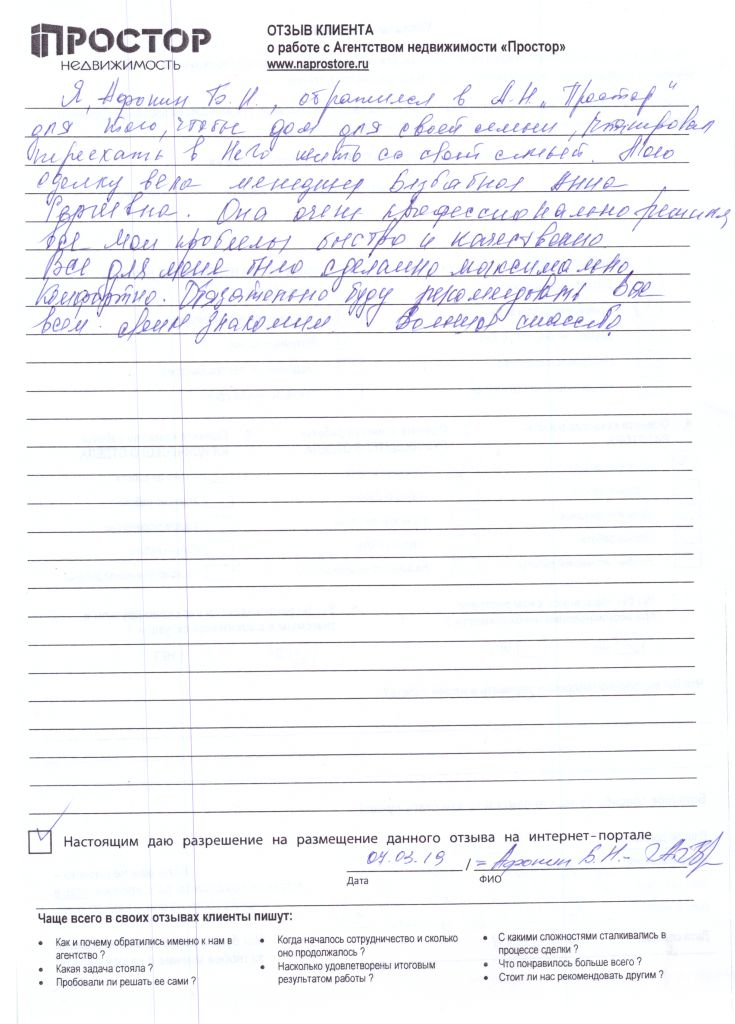 ПРОСТОР
НЕДВИЖИМОСТЬ
ОТЗЫВ КЛИЕНТА
о работе с Агентством недвижимости «Простор»
www.naprostore.ru
Я, Афонин Б.Н., обратился в А.Н. „Простор“
для того, чтобы дом для своей семьи, планировал
переехать в него жить со своей семьей. Мою
сделку вела менеджер Анна
Сергеевна. Она очень профессионально решила
все мои проблемы быстро и качественно.
Все для меня было сделанно максимально
комфортно. Обязательно буду рекомендовать Вас
всем своим знакомым. Большое спасибо.
Настоящим даю разрешение на размещение данного отзыва на интернет-портале
07.03.19 / = Афонин Б.Н. -
Дата ФИО
Чаще всего в своих отзывах клиенты пишут:
• Как и почему обратились именно к нам в агентство ?
• Какая задача стояла ?
• Пробовали ли решать ее сами ?
• Когда началось сотрудничество и сколько оно продолжалось ?
• Насколько удовлетворены итоговым результатом работы ?
• С какими сложностями сталкивались в процессе сделки ?
• Что понравилось больше всего ?
• Стоит ли нас рекомендовать другим ?